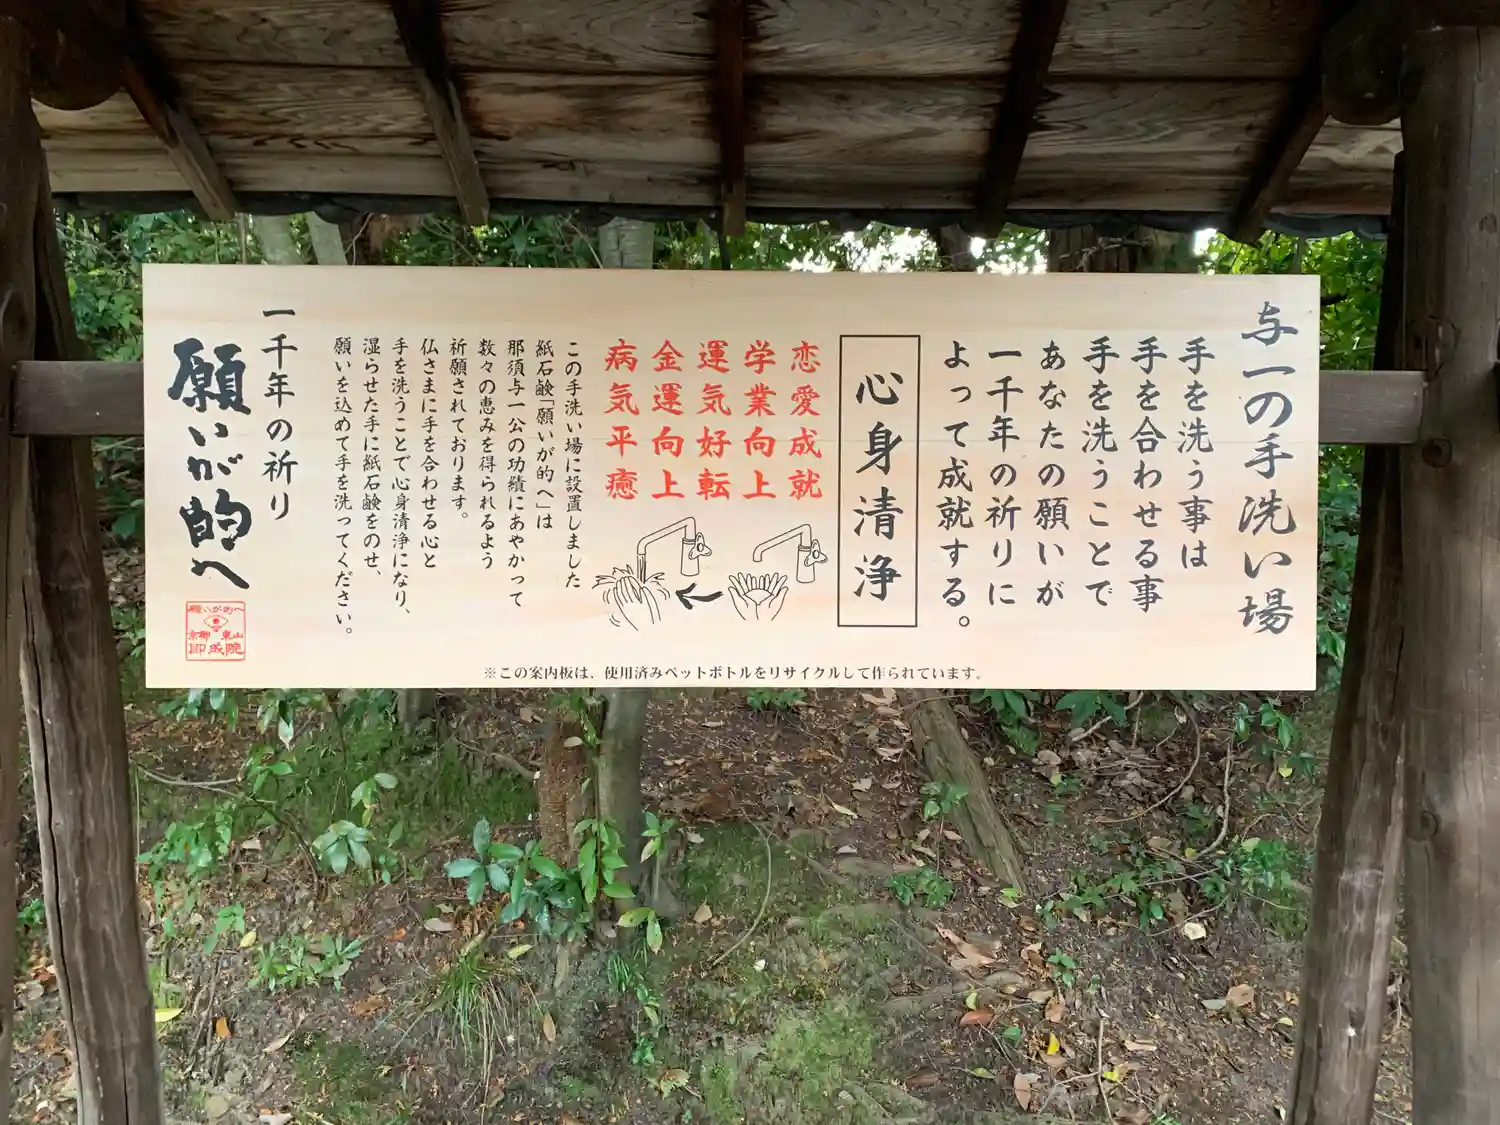 与一の手洗い場
手を洗う事は
手を合わせる事
手を洗うことで
あなたの願いが
一千年の祈りに
よって成就する。
心身清浄
恋愛成就
学業向上
運気好転
金運向上
病気平癒
この手洗い場に設置しました
紙石鹸「願いが的へ」は
那須与一公の功績にあやかって
数々の恵みを得られるよう
祈願されております。
仏さまに手を合わせる心と
手を洗うことで心身清浄になり、
湿らせた手に紙石鹸をのせ、
願いを込めて手を洗ってください。
一千年の祈り
願いが的へ
願いが的へ
京都 東山
即成院
※この案内板は、使用済みペットボトルをリサイクルして作られています。